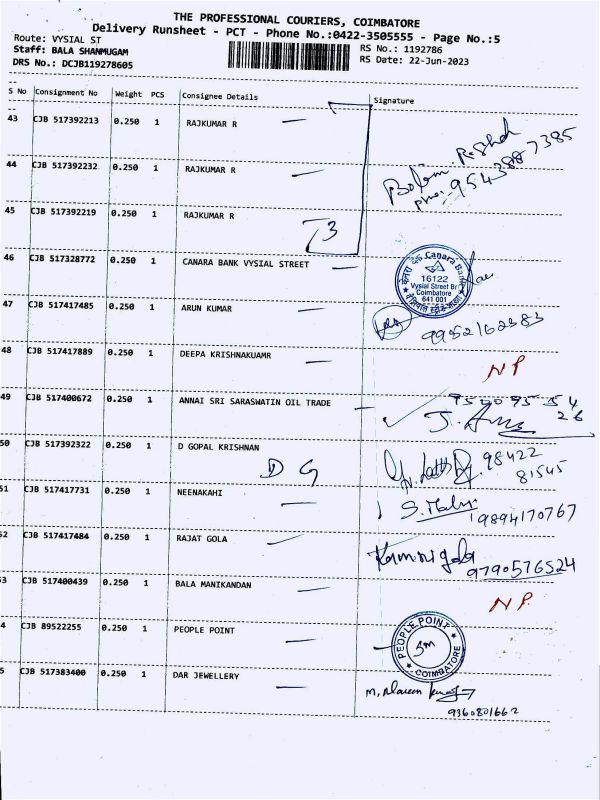 THE PROFESSIONAL COURIERS, COIMBATORE
Delivery Runsheet - PCT - Phone No.:0422-3505555 - Page No.:5
Route: VYSIAL ST
Staff: BALA SHANMUGAM
DRS No.: DCJB119278605
RS No.: 1192786
RS Date: 22-Jun-2023
S No Consignment No Weight PCS Consignee Details Signature
43 CJB 517392213 0.250 1 RAJKUMAR R
9543887385
44 CJB 517392232 0.250 1 RAJKUMAR R
45 CJB 517392219 0.250 1 RAJKUMAR R
3
46 CJB 517328772 0.250 1 CANARA BANK VYSIAL STREET
Canara Bank
16122
Vysial Street Br
Coimbatore
641 001
47 CJB 517417485 0.250 1 ARUN KUMAR
9952162383
48 CJB 517417889 0.250 1 DEEPA KRISHNAKUAMR
NP
49 CJB 517400672 0.250 1 ANNAI SRI SARASWATIN OIL TRADE
50 CJB 517392322 0.250 1 D GOPAL KRISHNAN
D G
98422
81545
51 CJB 517417731 0.250 1 NEENAKAHI
9894170767
52 CJB 517417484 0.250 1 RAJAT GOLA
9790576524
53 CJB 517400439 0.250 1 BALA MANIKANDAN
NP.
4 CJB 89522255 0.250 1 PEOPLE POINT
PEOPLE POINT
COIMBATORE
5 CJB 517383400 0.250 1 DAR JEWELLERY
9360801662